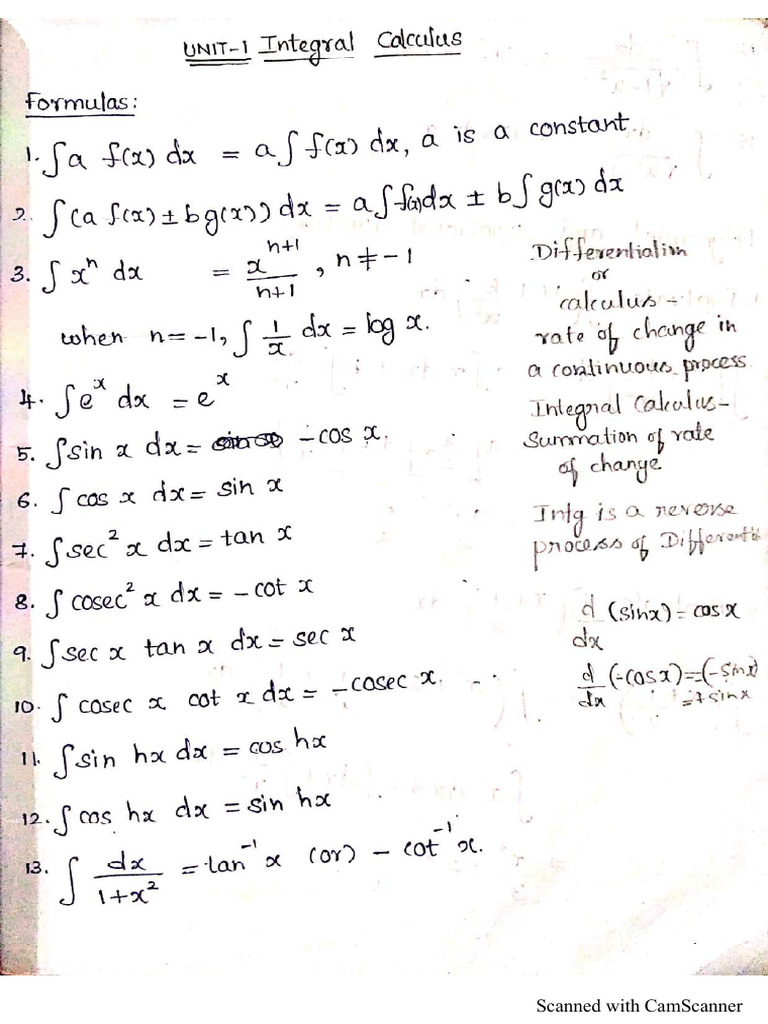 UNIT-1 Integral Calculus
Formulas:
1. ∫a f(x) dx = a∫ f(x) dx, a is a constant.
2. ∫(a f(x) ± b g(x)) dx = a∫f(x)dx ± b∫g(x) dx
3. ∫ xⁿ dx = xⁿ⁺¹/n+1 , n ≠ -1
when n = -1, ∫ 1/x dx = log x.
4. ∫eˣ dx = eˣ
5. ∫sin x dx = -cos x.
6. ∫ cos x dx = sin x
7. ∫sec² x dx = tan x
8. ∫ cosec² x dx = -cot x
9. ∫sec x tan x dx = sec x
10. ∫ cosec x cot x dx = -cosec x.
11. ∫sin hx dx = cos hx
12. ∫cos hx dx = sin hx
13. ∫ dx/1+x² = tan⁻¹ x (or) - cot⁻¹ x.
or
calculus -
rate of change in
a continuous process
Integral Calculus-
Summation of rate
of change
Intg is a reverse
process of
d/dx (sinx) = cos x
d/dx (-cos x) = -(-sin x)
= + sin x
Scanned with CamScanner